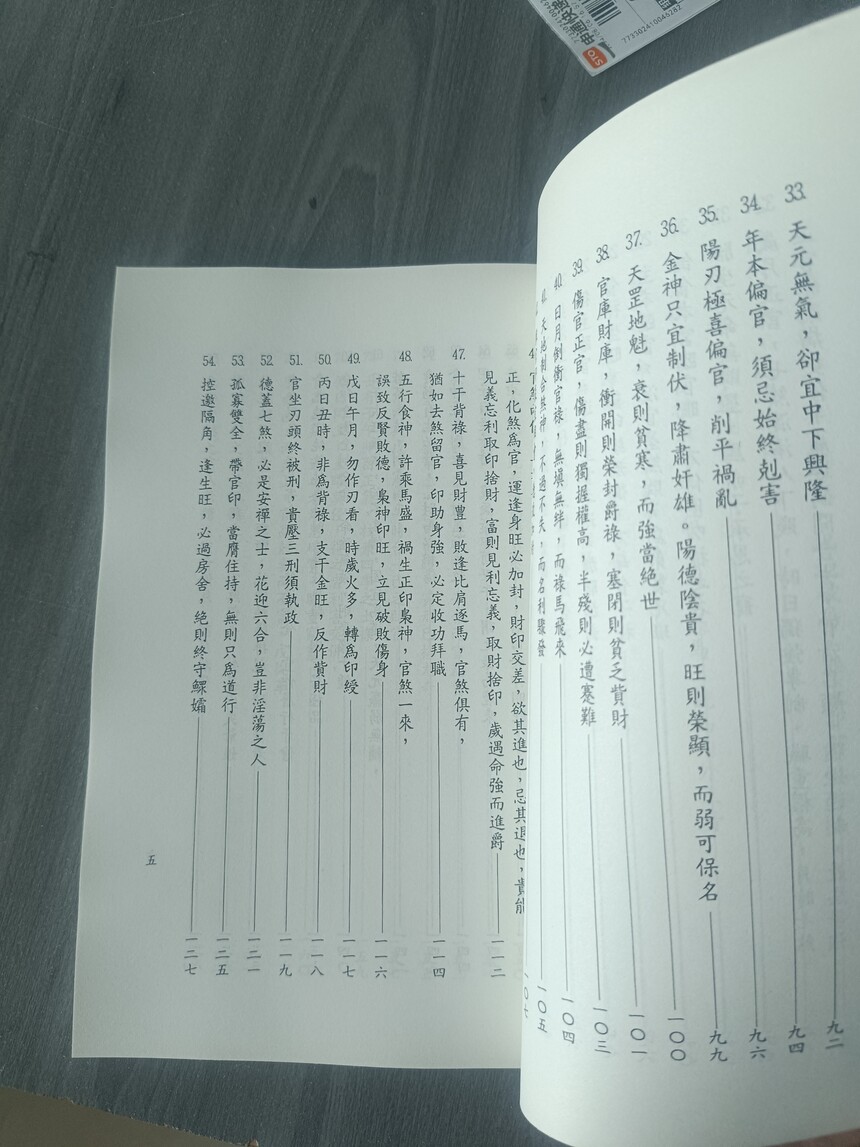 申通快递
STO
773302410046282
33. 天元無氣，卻宜中下興隆 九二
34. 年本偏官，須忌始終剋害 九四
35. 陽刃極喜偏官，削平禍亂 九六
36. 金神只宜制伏，降肅奸雄。陽德陰貴，旺則榮顯，而弱可保名 九九
37. 天罡地魁，衰則貧寒，而強當絕世 一〇〇
38. 官庫財庫，衝開則榮封爵祿，塞閉則貧乏貲財 一〇一
39. 傷官正官，傷盡則獨握權高，半殘則必遭蹇難 一〇三
40. 日月倒衝官祿，無填無絆，而祿馬飛來 一〇四
41. 天地制合煞神，不過不失，而名利驟發 一〇五
一〇七
正，化煞為官，運逢身旺必加封，財印交差，欲其進也，忌其退也，貴能
見義忘利取印捨財，富則見利忘義，取財捨印，歲遇命強而進爵 一一二
47. 十干背祿，喜見財豐，敗逢比肩逐馬，官煞俱有，
猶如去煞留官，印助身強，必定收功拜職 一一四
48. 五行食神，許乘馬盛，禍生正印梟神，官煞一來，
誤致反賢敗德，梟神印旺，立見破敗傷身 一一六
49. 戊日午月，勿作刃看，時歲火多，轉為印綬 一一七
50. 丙日丑時，非為背祿，支干金旺，反作貲財 一一八
51. 官坐刃頭終被刑，貴壓三刑須執政 一一九
52. 德蓋七煞，必是安禪之士，花迎六合，豈非淫蕩之人 一二一
53. 孤寡雙全，帶官印，當膺住持，無則只為道行 一二五
54. 控邀隔角，逢生旺，必過房舍，絕則終守鰥孀 一二七
五